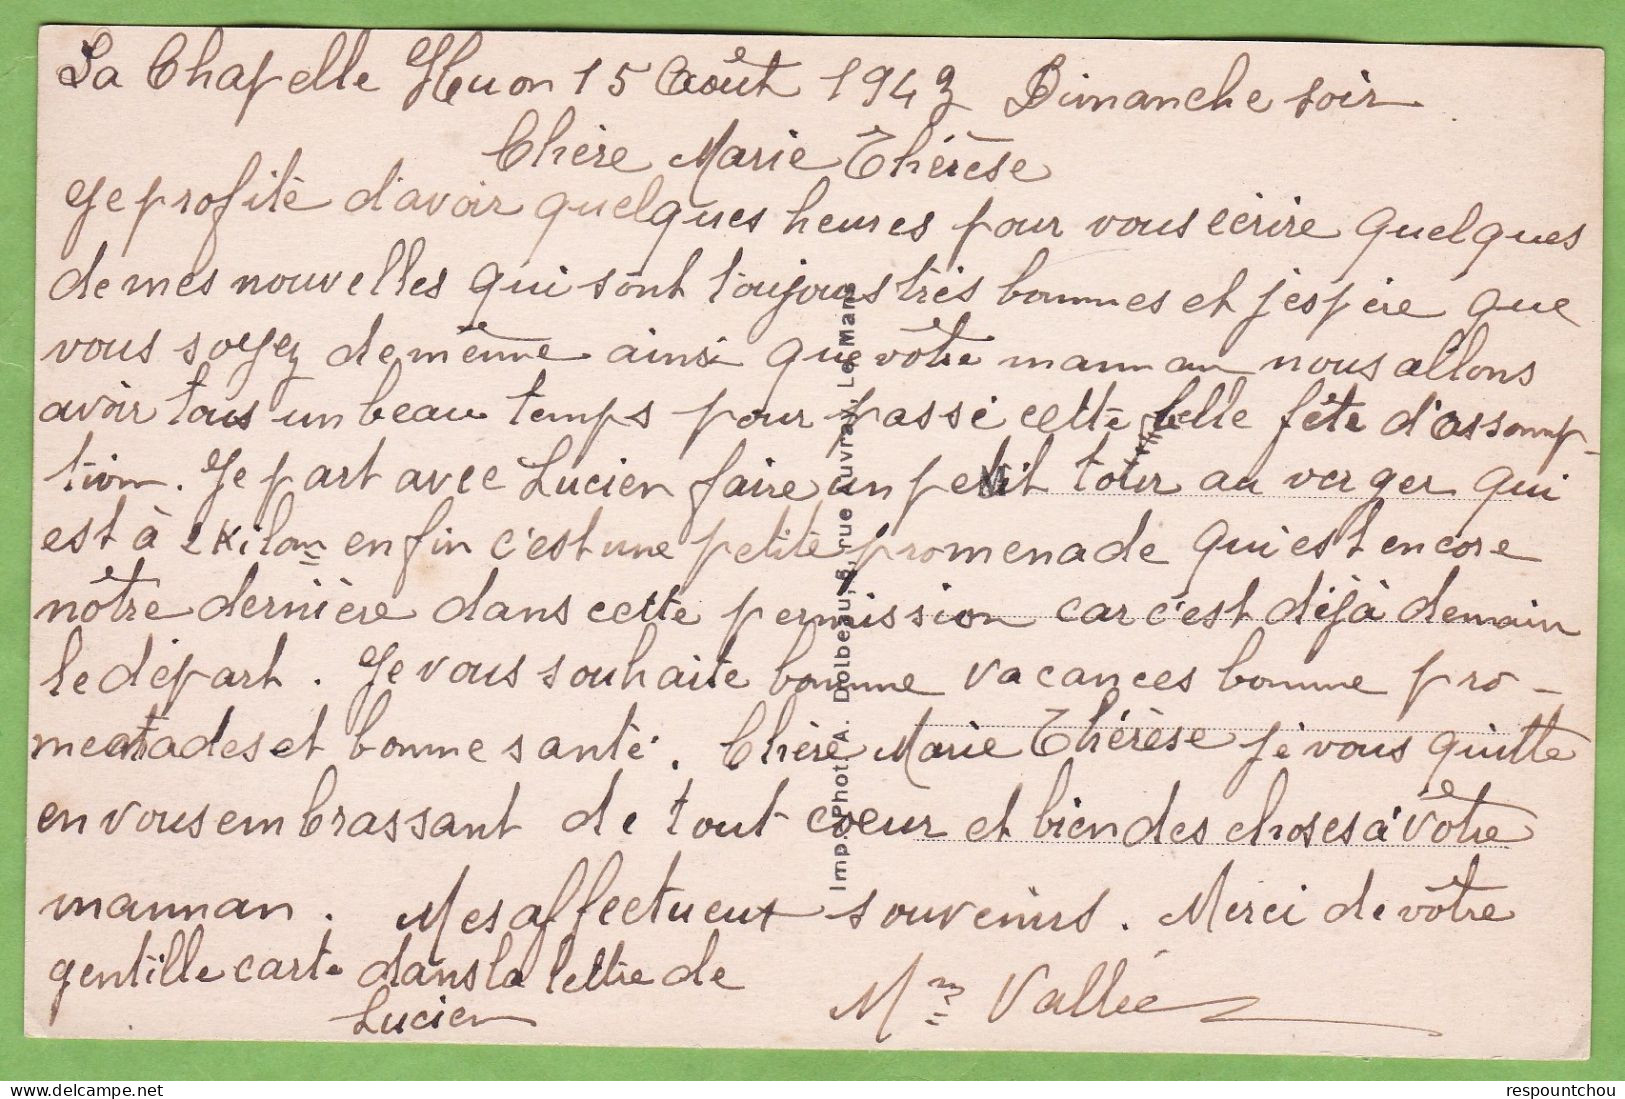 La Chapelle Huon 15 Août 1943 Dimanche soir
Chère Marie Thérèse
Je profite d'avoir quelques heures pour vous écrire quelques
de mes nouvelles qui sont toujours très bonnes et j'espère que
vous soyez de même ainsi que vôtre manman nous allons
avoir tous un beau temps pour passé cette belle fête d'assomp-
tion. Je part avec Lucien faire un petit tour au verger qui
est à 2 Kilom enfin c'est une petite promenade qui est encore
nôtre dernière dans cette permission car c'est déjà demain
le départ. Je vous souhaite bonne vacances bonne pro-
menades et bonne santé. Chère Marie Thérèse je vous quitte
en vous embrassant de tout coeur et bien des choses à vôtre
manman. Mes affectueux souvenirs. Merci de vôtre
gentille carte dans la lettre de
Lucien
Mm Vallée
Imp. Phot. A. Dolbeau, 8, rue Auvray, Le Mans
respountchou